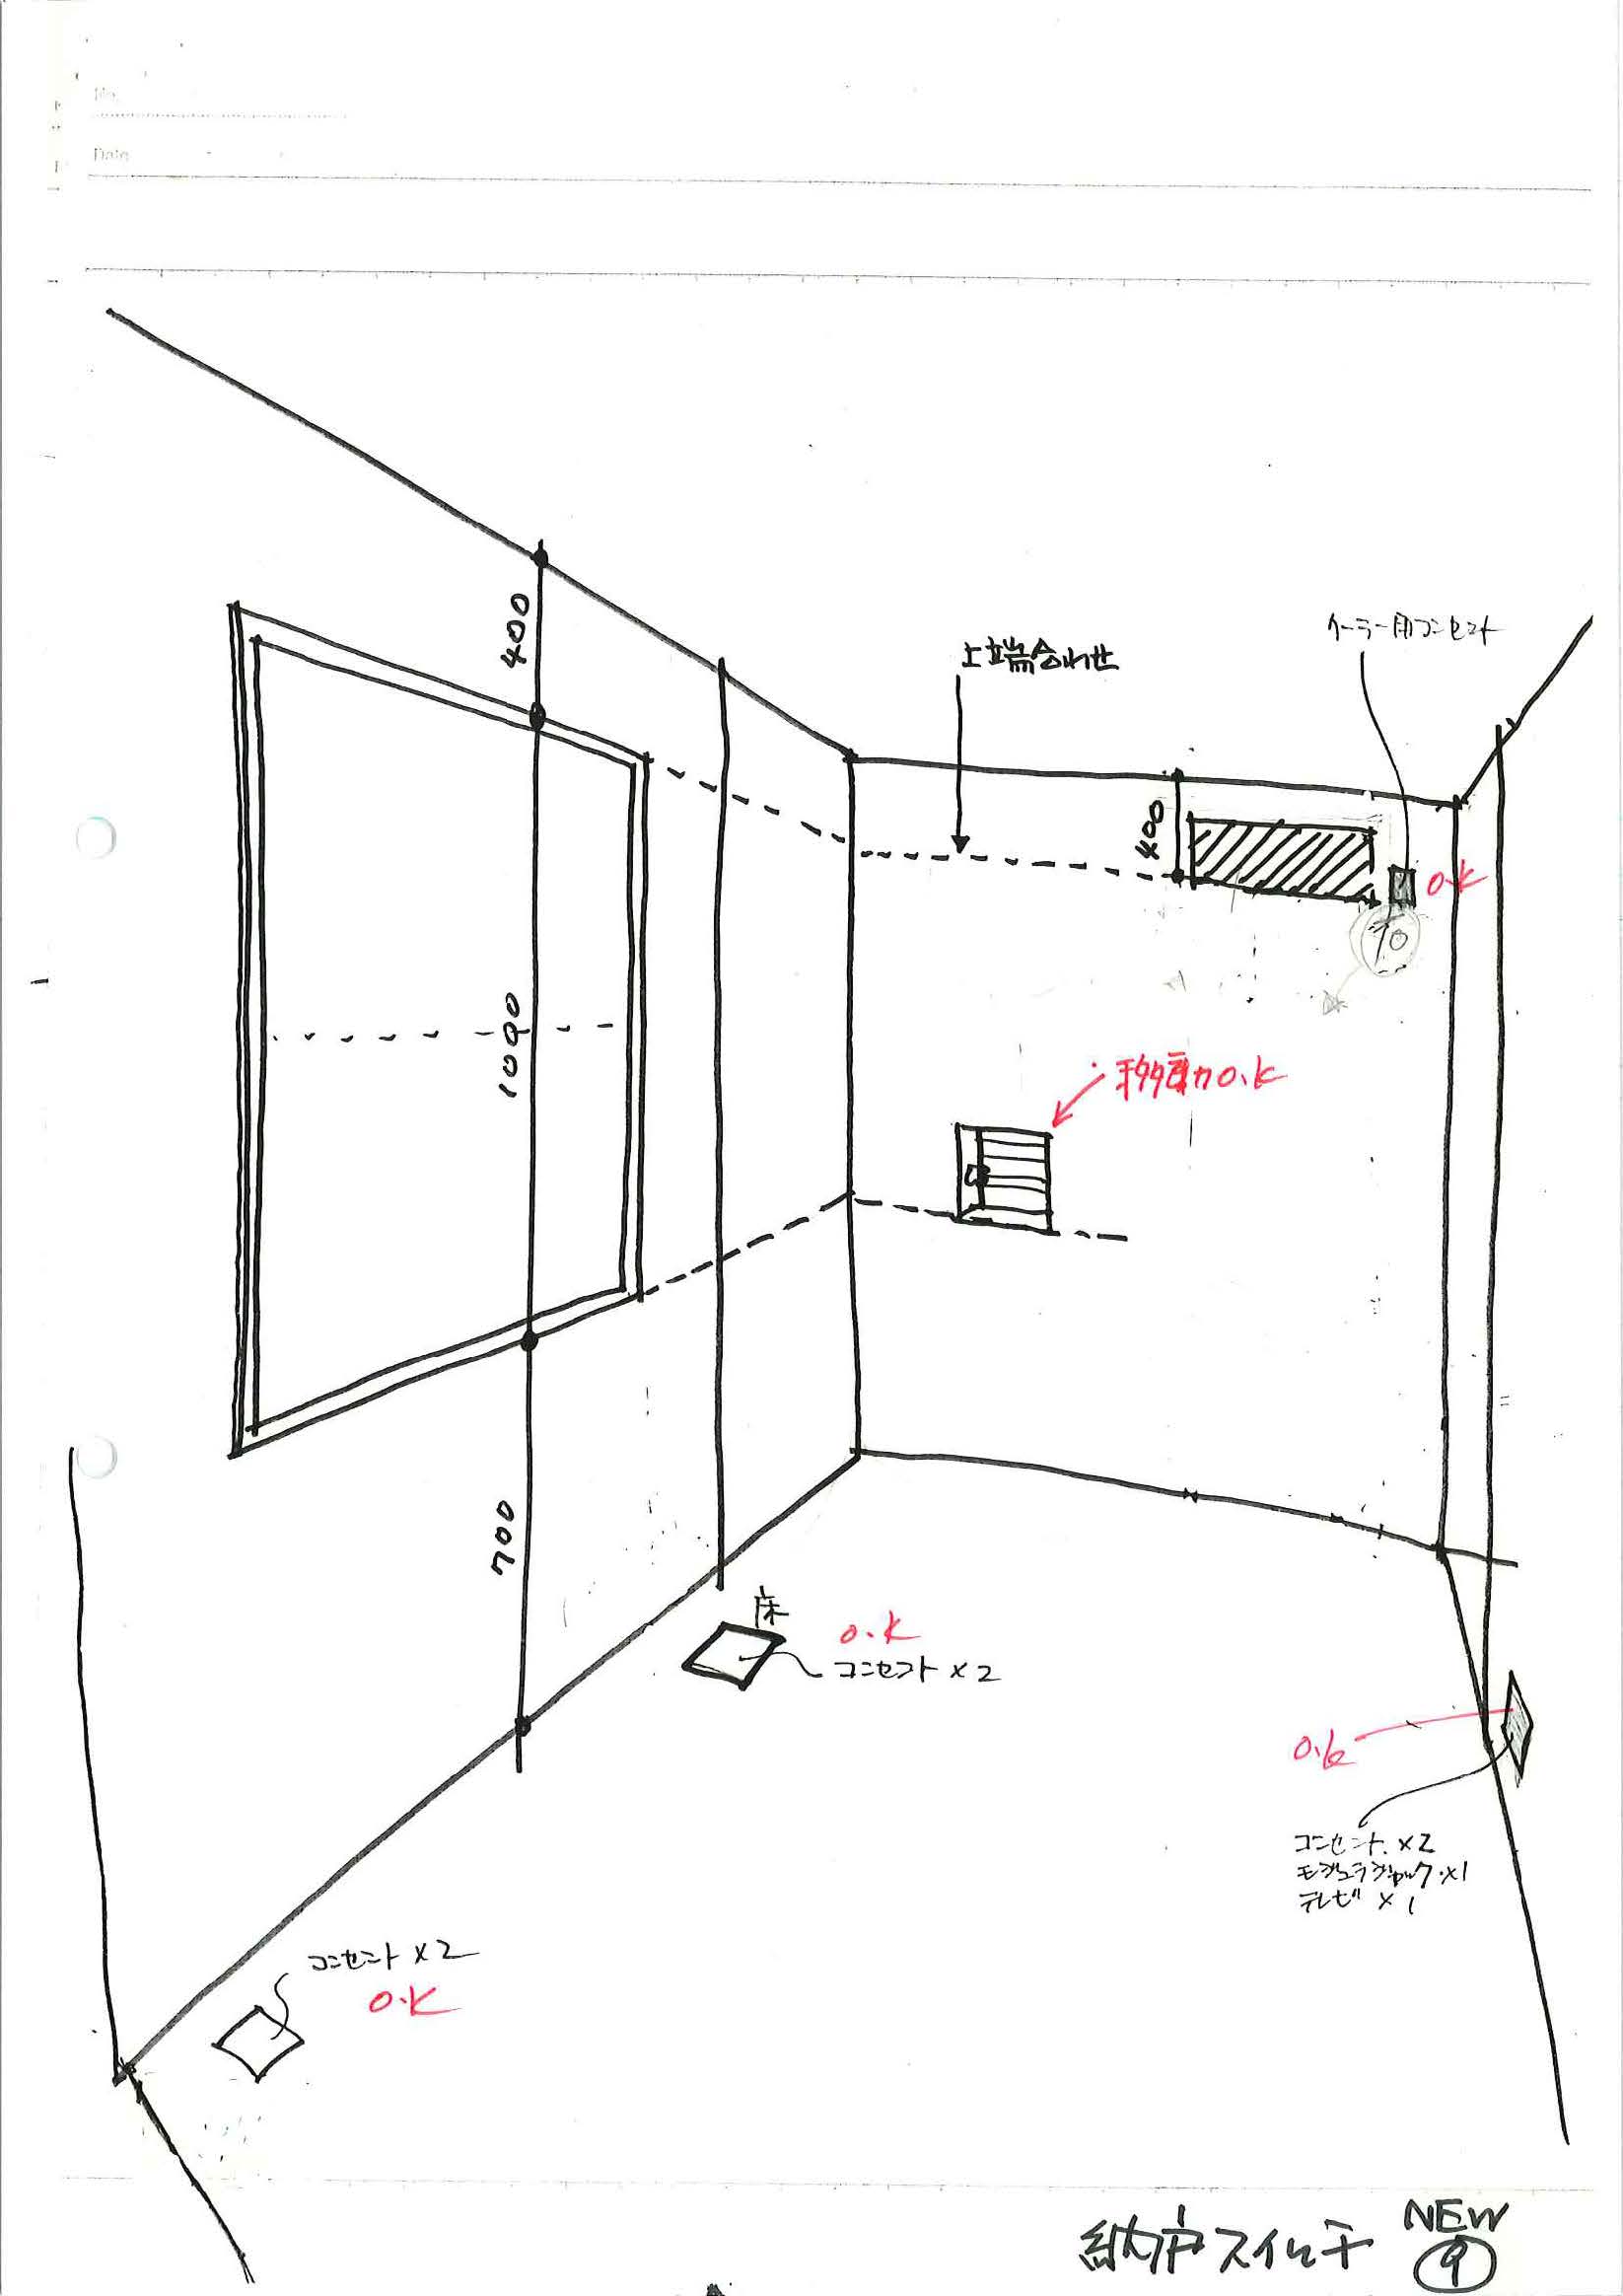 No.
Date
クーラー用コンセント
上端合わせ
400
400
O.K
1090
移動O.K
700
床
O.K
コンセント×2
O.K
コンセント.×2
モジュラジャック.×1
テレビ×1
コンセント×2
O.K
NEW
納戸スイッチ
9